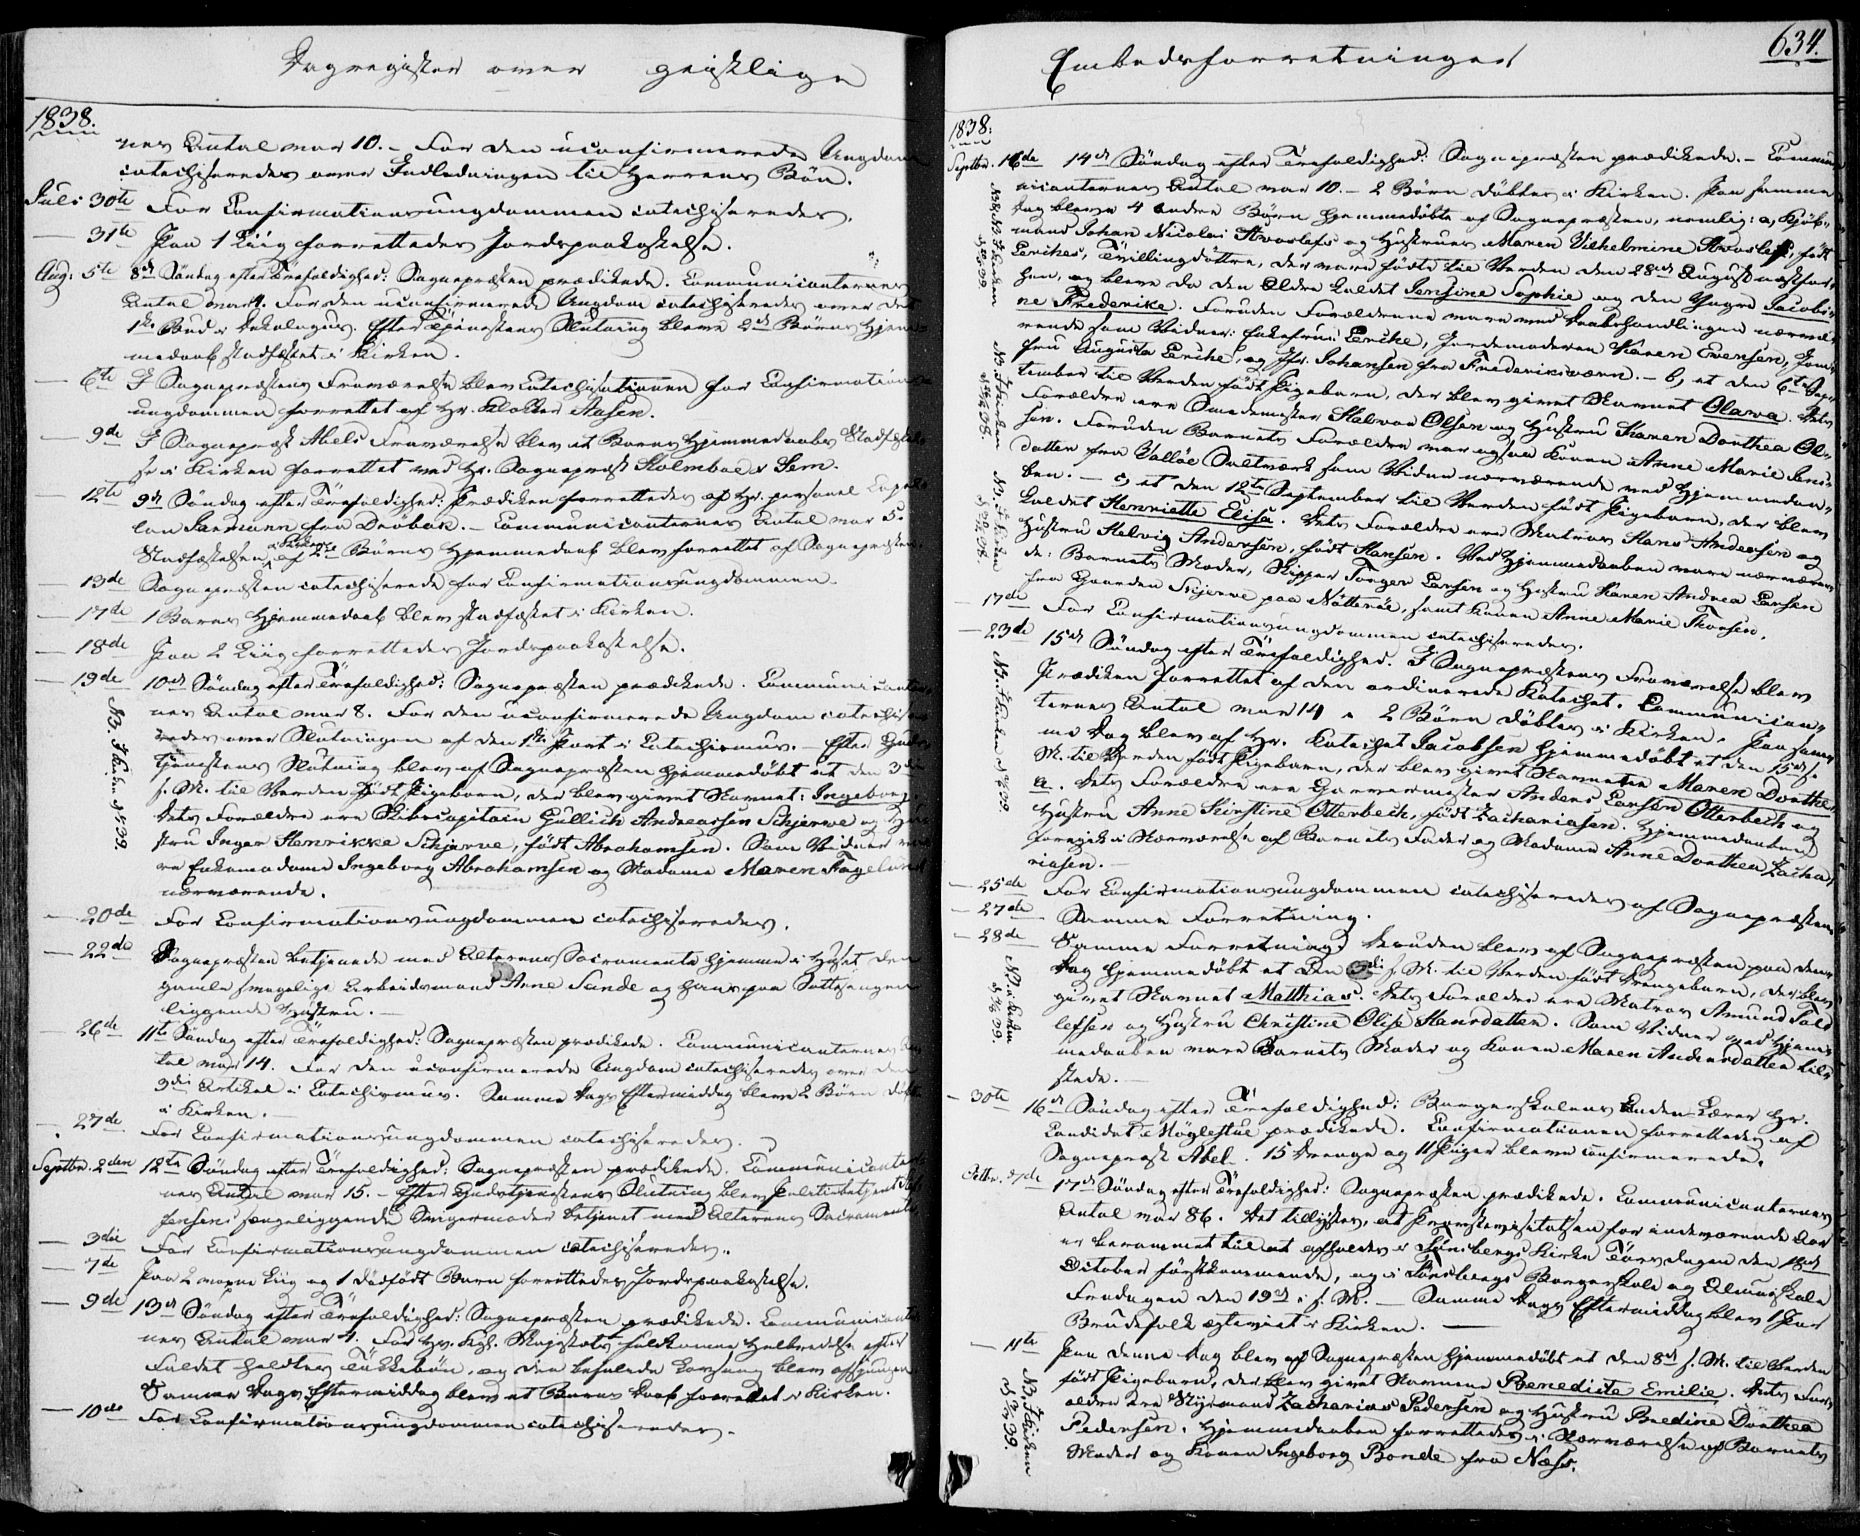 Dagregister over geistlige
1838.
nes Antal var 10. – For den uconfirmerede Ungdom
catechiseredes over Indledningen til Herrens Bøn.
Juli 30te For Confirmationsungdommen catechiseredes.
— 31te Paa 1 Liig forrettedes Jordspaakastelse.
Aug: 5te 8de Søndag efter Trefoldighed: Sognepræsten prædikede. Communicanternes
Antal var 4. For den uconfirmerede Ungdom catechiseredes over det
1ste Bud i Dekalogus. Efter Tjenestens Slutning bleve 2de Børns Hjem-
medaab stadfæstet i Kirken.
— 6te I Sognepræstens Fraværelse blev Catechisationen for Confirmations-
ungdommen forrettet af Hr. Klokker Aasen.
— 9de I Sognepræst Abels Fraværelse blev et Barns Hjemmedaabs Stadfæstel-
se i Kirken forrettet ved Hr. Sognepræst Holmboe i Sem.
— 12te 9de Søndag efter Trefoldighed: Prædiken forrettedes af Hr. personel Capel-
lan Saxmann fra Drøbak. – Communicanternes Antal var 5.
Stadfæstelsen i Kirken af 2de Børns Hjemmedaab blev forrettet af Sognepræsten.
— 13de Sognepræsten catechiserede for Confirmationsungdommen.
— 17de 1 Barns Hjemmedaab blev stadfæstet i Kirken.
— 18de Paa 2 Liig forrettedes Jordspaakastelse.
— 19de 10de Søndag efter Trefoldighed: Sognepræsten prædikede. Communicanter-
nes Antal var 8. For den uconfirmerede Ungdom catechise-
redes over Slutningen af den 1ste Part i Catechismus. – Efter Guds-
tjenestens Slutning blev af Sognepræsten hjemmedøbt et den 3die
f. M. til Verden født Pigebarn, der blev givet Navnet: Ingeborg.
Dets Forældre ere Skibscapitain Gullich Andreassen Schjerve og Hu-
stru Inger Henrikke Schjerve, født Abrahamsen. Som Vidner va-
re Enkemadame Ingeborg Abrahamsen og Madame Maren Fogelund
nærværende.
NB. I Kirken
— 20de For Confirmationsungdommen catechiseredes.
— 22de Sognepræsten betjenede med Alterens Sacramente hjemme i Huset den
gamle svagelige Arbeidsmand Arne Sande og hans paa Sottesengen
liggende Hustru. –
— 26de 11te Søndag efter Trefoldighed: Sognepræsten prædikede. Communicanternes An-
tal var 14. For den uconfirmerede Ungdom catechiseredes over den
3die Artikel i Catechismus. Samme Dags Eftermiddag bleve 2 Børn døbte
i Kirken. –
— 27de For Confirmationsungdommen catechiseredes.
Septbr. 2den 12te Søndag efter Trefoldighed: Sognepræsten prædikede. Communicanter-
nes Antal var 15. – Efter Gudstjenestens Slutning blev Politiebetjent
Jensens sængeliggende Svigermoder betjenet med Alterens Sacramente.
— 3die For Confirmationsungdommen catechiseredes.
— 7de Paa 2 voxne Liig og 1 dødfødt Barn forrettedes Jordspaakastelse.
— 9de 13de Søndag efter Trefoldighed: Sognepræsten prædikede. Communicanter-
nes Antal var 4. For Hs. Kgl. Majestæts fuldkomne Helbredelse efter
Faldet holdtes Takkebøn, og den befalede Lovsang blev afsjungen.
Samme Dags Eftermiddag blev et Barns Daab forrettet i Kirken.
— 10de For Confirmationsungdommen catechiseredes.
Embedsforretninger
634.
1838.
Septbr. 16de 14de Søndag efter Trefoldighed: Sognepræsten prædikede. – Commu-
nicanternes Antal var 10. – 2 Børn døbtes i Kirken. Paa samme
Dag bleve 4 andre Børn hjemmedøbte af Sognepræsten, nemlig: a, Kjøb-
mand Johan Nicolai Hvoslefs og Hustrues Maren Vilhelmine Hvoslefs, født
Lerches, Tvillingdøttre, der vare fødte til Verden den 28de August næstfor-
hen, og bleve da den Ældre kaldet Jensine Sophie og den Yngre Jacobi-
ne Frederike. Foruden Forældrene vare ved Daabshandlingen nærvæ-
rende som Vidner: Enkefrue Lerche, Jordemoderen Karen Evensen, Jom-
fru Augusta Lerche, og Hr. Johansen fra Frederiksværn. – b, et den 6te Sep-
tember til Verden født Pigebarn, der blev givet Navnet Olava. Dets
Forældre ere Smedemester Halvor Olsen og Hustru Karen Dorthea Ol-
sen. Foruden Barnets Forældre var ogsaa Konen Anne Marie Jens-
datter fra Valløe Saltværk som Vidne nærværende ved Hjemmedaa-
ben. – c, et den 12te September til Verden født Pigebarn, der blev
kaldet Henriette Elisa. Dets Forældre ere Matros Hans Andersen og
Hustru Helvig Andersen, født Hansen. Ved Hjemmedaaben vare nærværen-
de: Barnets Moder, Skipper Torger Larsen og Hustru Karen Andrea Larsen
fra Gaarden Skjerve paa Nøtterøe, samt Konen Anne Marie Thorsen.
— 17de For Confirmationsungdommen catechiseredes.
— 23de 15de Søndag efter Trefoldighed. I Sognepræstens Fraværelse blev
Prædiken forrettet af den ordinerede Katechet. Communican-
ternes Antal var 14. 2 Børn døbtes i Kirken. Paa sam-
me Dag blev af Hr. Katechet Jacobsen hjemmedøbt et den 15de f.
M. til Verden født Pigebarn, der blev givet Navnene Maren Dorthe-
a. Dets Forældre ere Garvermester Anders Larsen Otterbech og
Hustru Anne Kirstine Otterbech, født Zachariasen. Hjemmedaaben
foregik i Nærværelse af Barnets Fader og Madame Anne Dorthea Zacha-
riasen. –
— 25de For Confirmationsungdommen catechiseredes af Sognepræsten.
— 27de Samme Forretning.
— 28de Samme Forretning. Desuden blev af Sognepræsten paa denne
Dag hjemmedøbt et den 3die f. M. til Verden født Drengebarn, der blev
givet Navnet Matthias. Dets Forældre ere Matros Amund Tol-
lefsen og Hustru Christine Olise Hansdatter. Som Vidner ved Hjem-
medaaben vare Barnets Moder og Konen Maren Andersdatter tils-
tede. –
— 30te 16de Søndag efter Trefoldighed: Borgerskolens Anden-Lærer Hr.
Candidat Høylestue prædikede. Confirmationen forrettedes af
Sognepræst Abel. 15 Drenge og 11 Piger bleve confirmerede.
Octbr. 7de 17de Søndag efter Trefoldighed: Sognepræsten prædikede. Communicanternes
Antal var 86. Det tillystes, at Provstevisitatsen for indeværende Aar
er berammet til at afholdes i Tønsbergs Kirke Torsdagen den 18de
October førstkommende, og i Tønsbergs Borgerskole og Almueskole
Fredagen den 19de i f. M. – Samme Dags Eftermiddag blev 1 Par
Brudefolk ægteviet i Kirken. –
— 11te Paa denne Dag blev af Sognepræsten hjemmedøbt et den 8de f. M. til Verden
født Pigebarn, der blev givet Navnene Benedicte Emilie. Dets For-
ældre ere Styrmand Zacharias Pedersen og Hustru Bredine Dorthea
Pedersen. Hjemmedaaben forrettedes i Nærværelse af Barnets
Moder og Konen Ingeborg Bonde fra Næss.